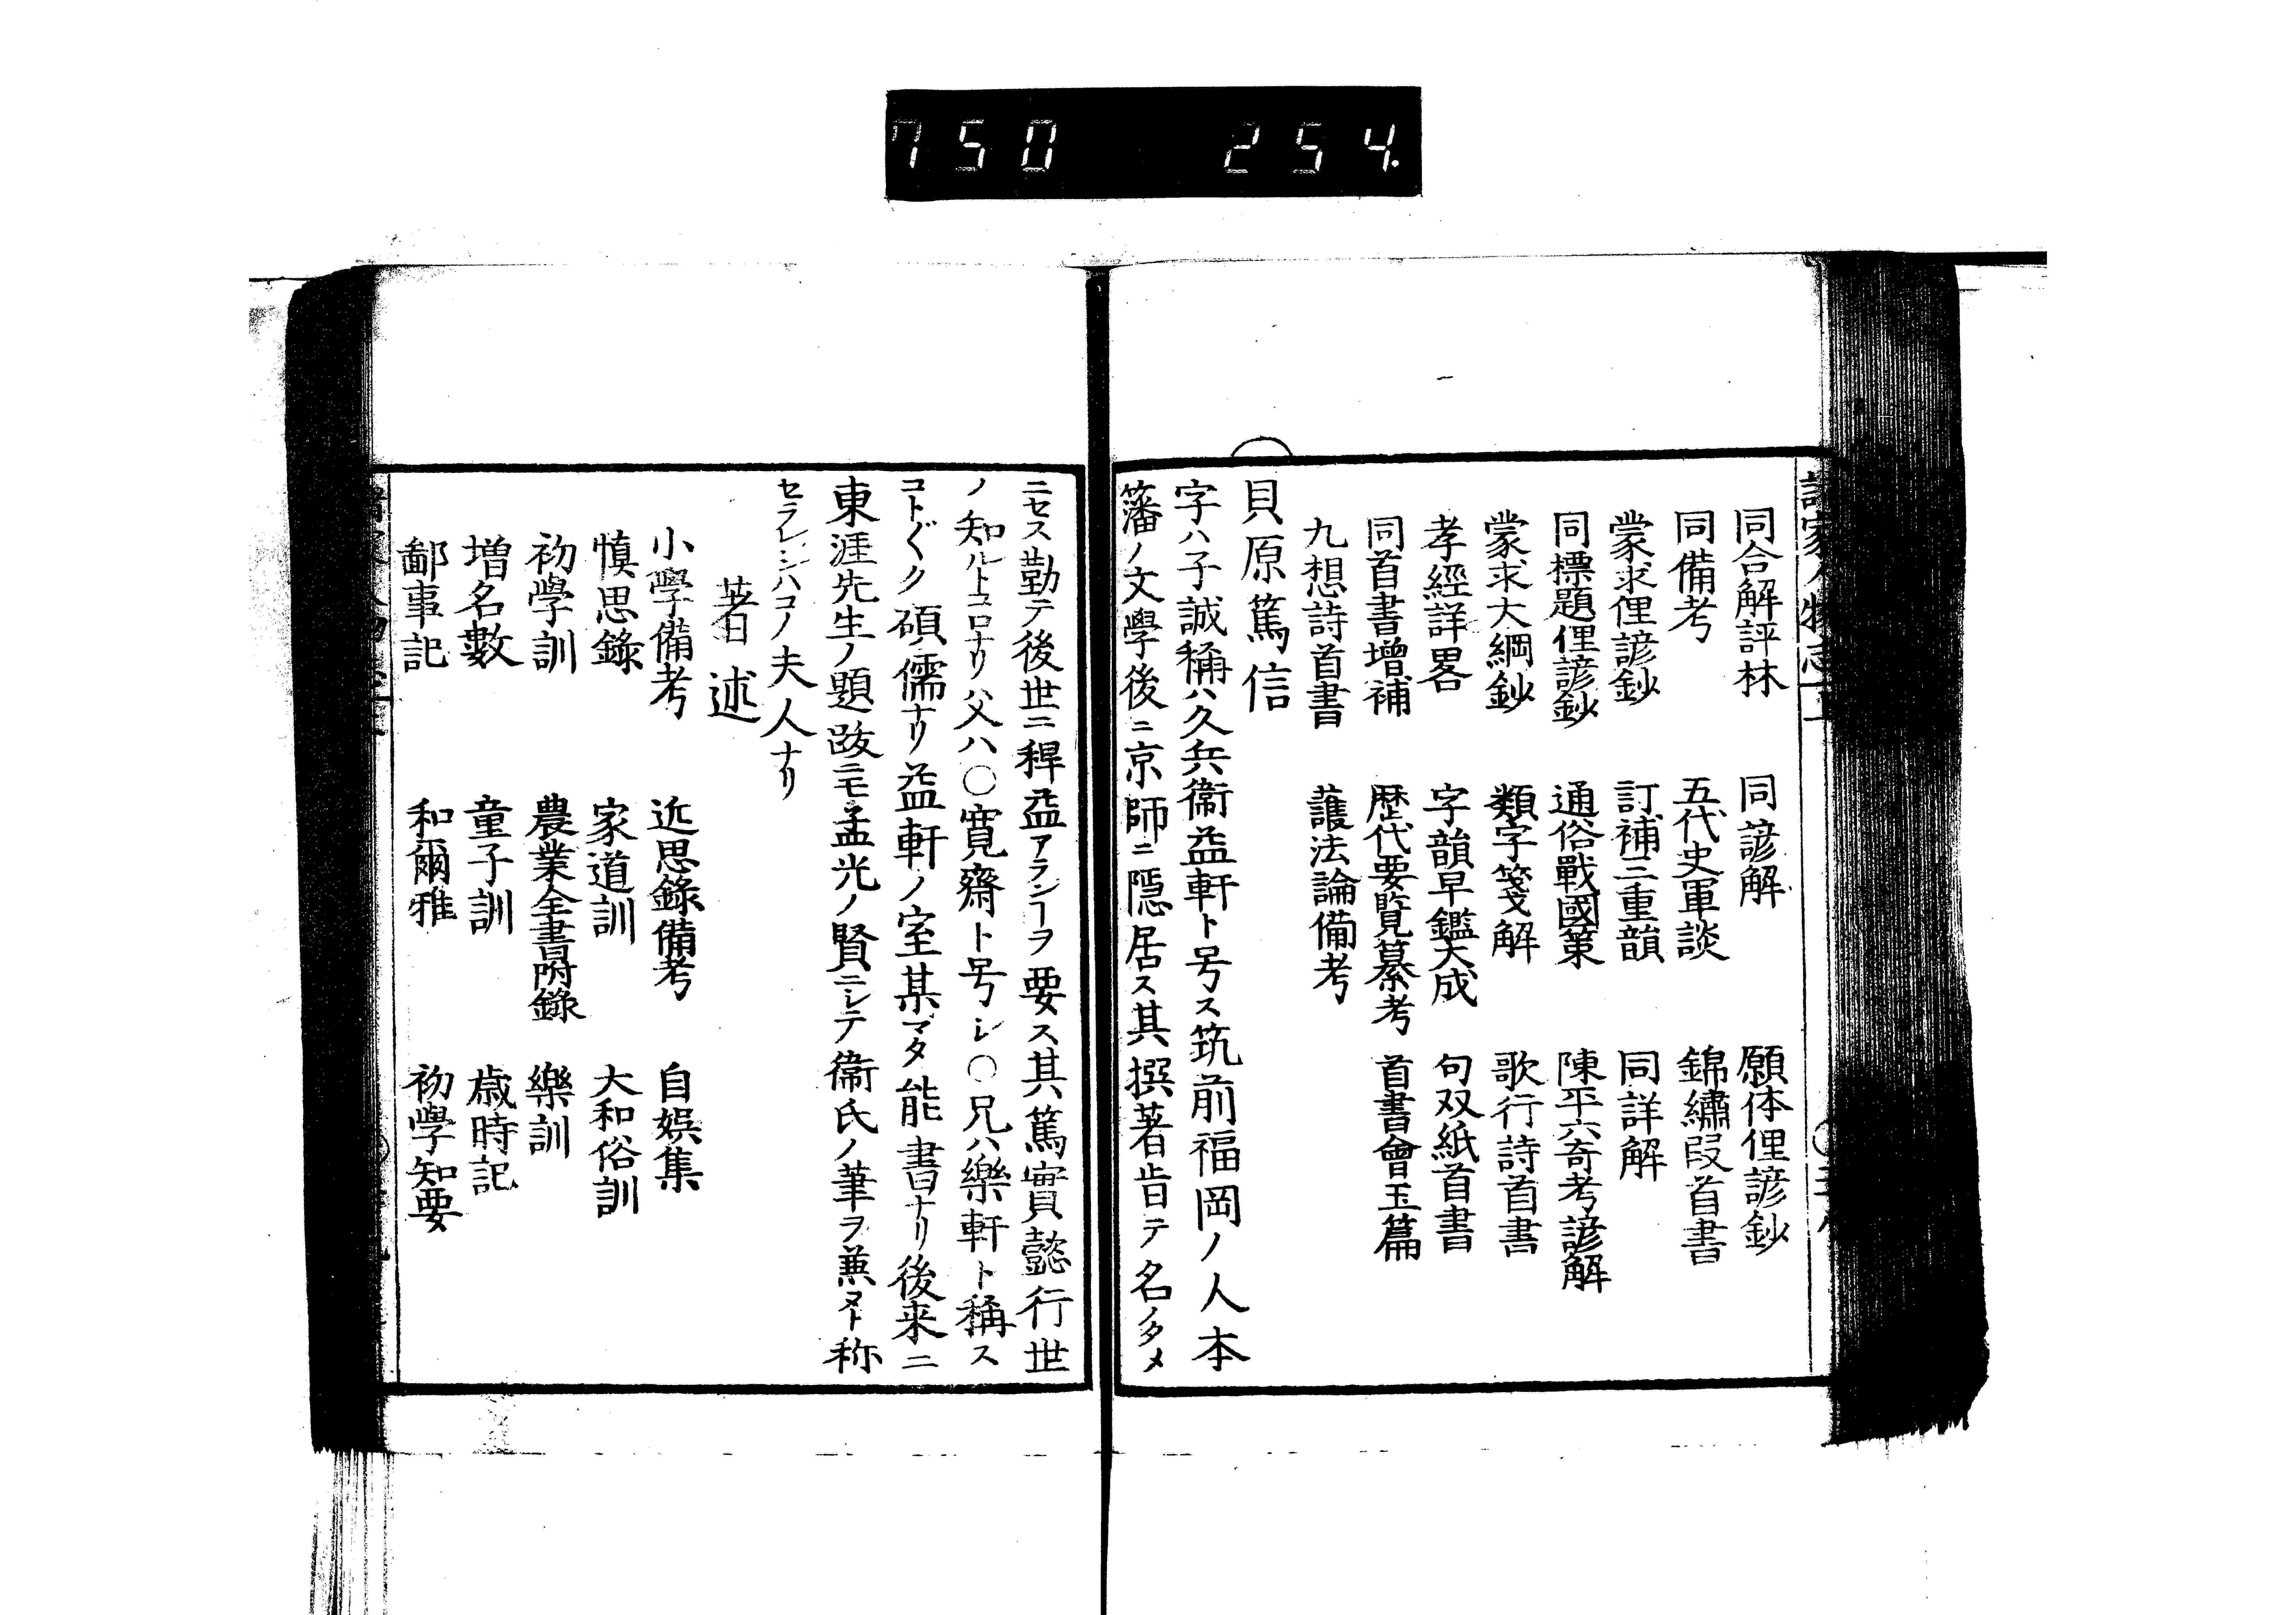 750 254.
同合解評林 同諺解 願体俚諺鈔
同備考 五代史軍談 錦繡段首書
蒙求俚諺鈔 訂補三重韻 同詳解
同標題俚諺鈔 通俗戰國策 陳平六奇考諺解
蒙求大綱鈔 類字箋解 歌行詩首書
孝經詳畧 字韻早鑑大成 句双紙首書
同首書增補 歷代要覧纂考 首書會玉篇
九想詩首書 護法論備考
貝原篤信
字ハ子誠稱ハ久兵衞益軒ト号ス筑前福岡ノ人本
藩ノ文學後ニ京師ニ隱居ス其撰著皆テ名ノタメ
ニセス勤テ後世ニ稗益アランヿヲ要ス其篤實懿行世
ノ知ルトコロナリ父ハ〇寬齋ト号シ〇兄ハ樂軒ト稱ス
コト〴〵ク碩儒ナリ益軒ノ室某マタ能書ナリ後来ニ
東涯先生ノ題跋ニモ孟光ノ賢ニシテ衞氏ノ筆ヲ兼ヌト称
セラレシハコノ夫人ナリ
著述
小學備考 近思錄備考 自娯集
慎思錄 家道訓 大和俗訓
初學訓 農業全書附錄 樂訓
增名數 童子訓 歳時記
鄙事記 和爾雅 初學知要